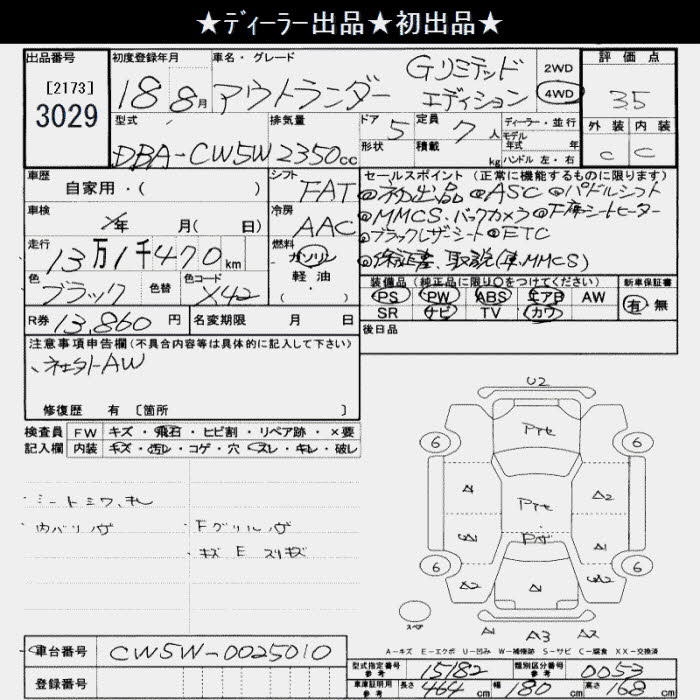 ★ディーラー出品★初出品★
出品番号
[2173]
3029
初度登録年月
18 8月
車名・グレード
アウトランダー
Gリミテッド
エディション
2WD
4WD
評価点
3.5
外装 内装
C C
型式
DBA-CW5W
排気量
2350cc
ドア 5
形状
定員 7人
積載 kg
ディーラー・並行
モデル
年式 年
ハンドル 左・右
車歴
自家用・( )
シフト FAT
車検
年 月( 日)
冷房 AAC
走行
13万1千470km
燃料
ガソリン
軽・油
( )
色
ブラック
色替
色コード
X42
セールスポイント (正常に機能するものに限ります)
◎初出品 ◎ASC ◎パドルシフト
◎MMCS、バックカメラ ◎F席シートヒーター
◎ブラックレザーシート ◎ETC
◎保証書、取説(車、MMCS)
装備品 (純正品に限り○をつけてください)
PS PW ABS エアB AW
SR ナビ TV カワ
新車保証書
有・無
R券 13,860円
名変期限 月 日
後日品
注意事項申告欄(不具合内容等は具体的に記入して下さい)
、社外AW
修復歴 有 〔箇所 〕
検査員
記入欄
FW キズ・飛石・ヒビ割・リペア跡・×要
内装 キズ・汚レ・コゲ・穴・スレ・キレ・破レ
・シートシワ、
・内バリ
・Fグリル
・キズ E スリキズ
U2
6 6
A1 A2
A1
6 6
A2 A1
スペア
A1 A3 A2
A-キズ E-エクボ U-凹み W-補修跡 S-サビ C-腐食 XX-交換済
車台番号
CW5W-0025010
登録番号
型式指定番号
参考
15182
類別区分番号
参考
0053
車庫証明用
参考
長さ 464cm
幅 180cm
高さ 168cm